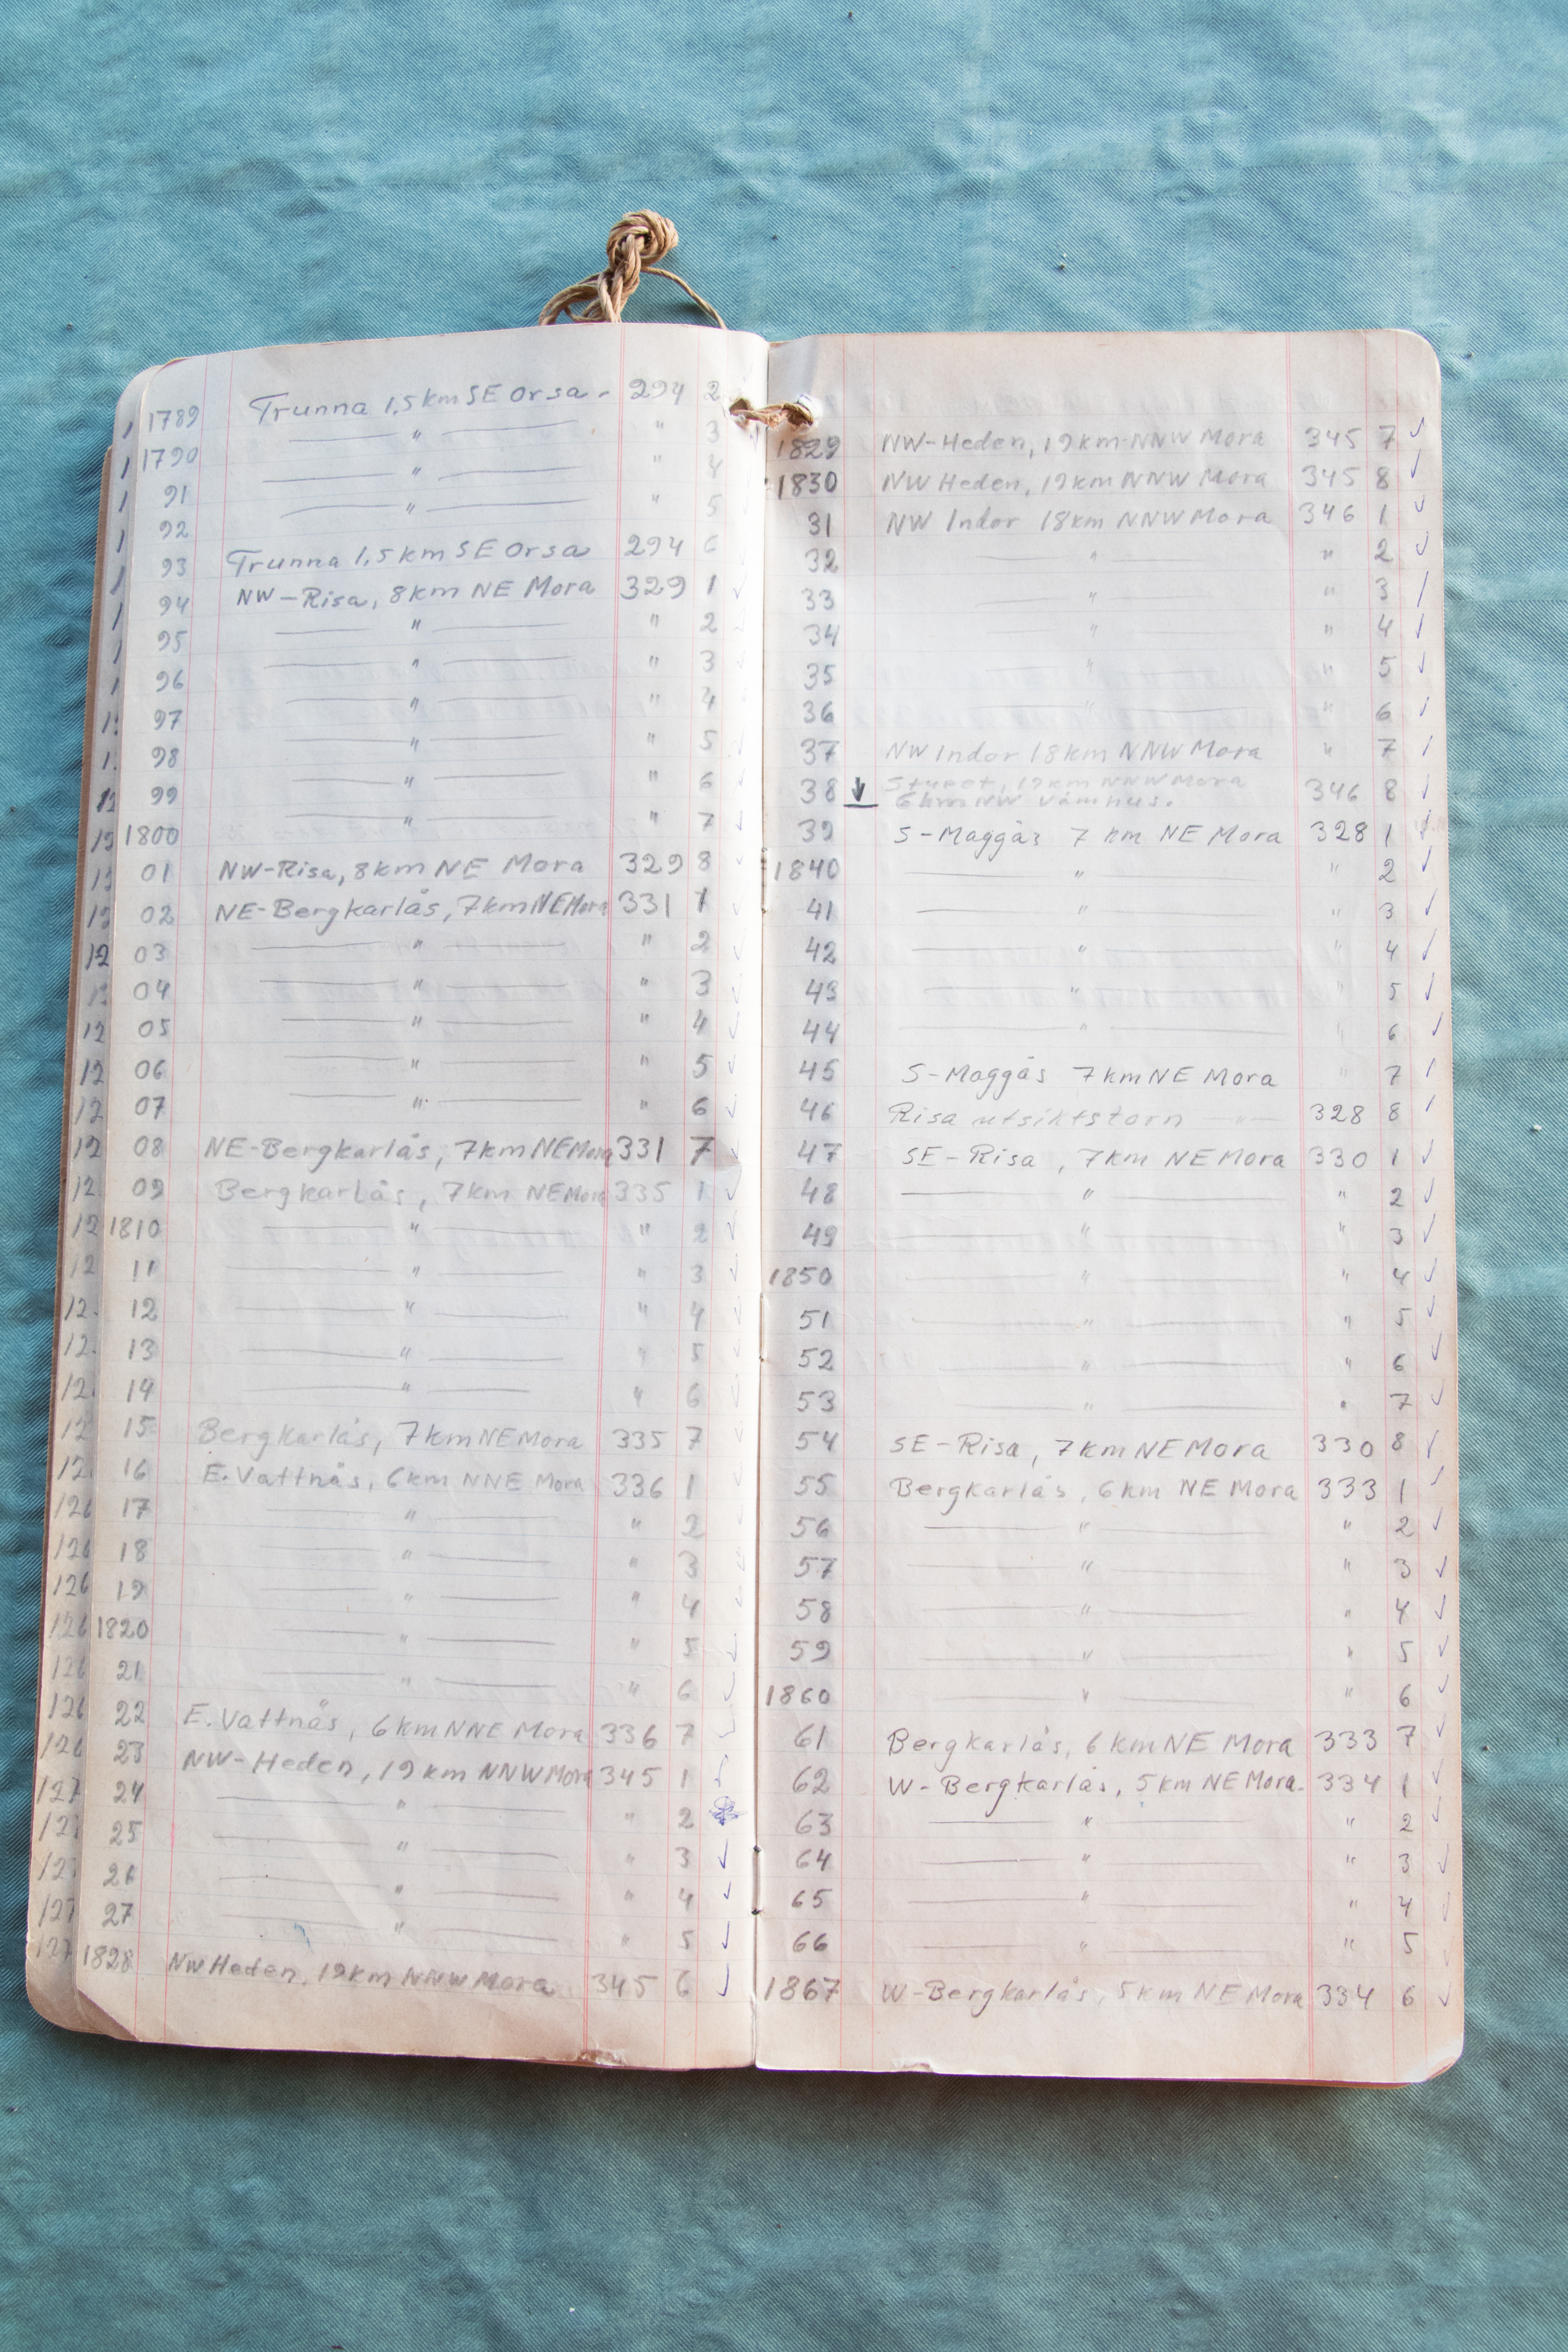 1789 Trunna 1,5 km SE Orsa - 294 2
1790 — " — " 3
91 — " — " 4
92 — " — " 5
93 Trunna 1,5 km SE Orsa 294 6
94 NW-Risa, 8km NE Mora 329 1
95 — " — " 2
96 — " — " 3
97 — " — " 4
98 — " — " 5
99 — " — " 6
1800 — " — " 7
01 NW-Risa, 8km NE Mora 329 8
02 NE-Bergkarlås, 7km NE Mora 331 1
03 — " — " 2
04 — " — " 3
05 — " — " 4
06 — " — " 5
07 — " — " 6
08 NE-Bergkarlås, 7km NE Mora 331 7
09 Bergkarlås, 7km NE Mora 335 1
1810 — " — " 2
11 — " — " 3
12 — " — " 4
13 — " — " 5
14 — " — " 6
15 Bergkarlås, 7km NE Mora 335 7
16 E. Vattnäs, 6km NNE Mora 336 1
17 — " — " 2
18 — " — " 3
19 — " — " 4
1820 — " — " 5
21 — " — " 6
22 E. Vattnäs, 6km NNE Mora 336 7
23 NW-Heden, 19km NNW Mora 345 1
24 — " — " 2
25 — " — " 3
26 — " — " 4
27 — " — " 5
1828 NW Heden, 19km NNW Mora 345 6
1829 NW-Heden, 19km NNW Mora 345 7
1830 NW Heden, 19km NNW Mora 345 8
31 NW Indor 18km NNW Mora 346 1
32 — " — " 2
33 — " — " 3
34 — " — " 4
35 — " — " 5
36 — " — " 6
37 NW Indor 18km NNW Mora " 7
38 ↓ 19km NNW Mora 346 8
6km NW Våmhus.
39 S-Maggås 7 km NE Mora 328 1
1840 — " — " 2
41 — " — " 3
42 — " — " 4
43 — " — " 5
44 — " — " 6
45 S-Maggås 7km NE Mora " 7
46 Risa utsiktstorn — " — 328 8
47 SE-Risa, 7km NE Mora 330 1
48 — " — " 2
49 — " — " 3
1850 — " — " 4
51 — " — " 5
52 — " — " 6
53 — " — " 7
54 SE-Risa, 7km NE Mora 330 8
55 Bergkarlås, 6km NE Mora 333 1
56 — " — " 2
57 — " — " 3
58 — " — " 4
59 — " — " 5
1860 — " — " 6
61 Bergkarlås, 6km NE Mora 333 7
62 W-Bergkarlås, 5km NE Mora. 334 1
63 — " — " 2
64 — " — " 3
65 — " — " 4
66 — " — " 5
1867 W-Bergkarlås, 5km NE Mora 334 6